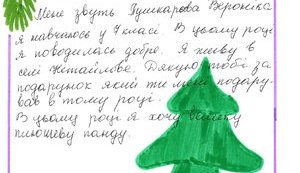 Мене звуть Гушкарова Вероніка
Я навчаюсь у 7 класі. В цьому році
я поводилась добре. Я живу в
селі Нетайлове. Дякую тобі за
подарунок який ти мені подару-
вав в тому році.
В цьому році я хочу велику
плюшеву панду.